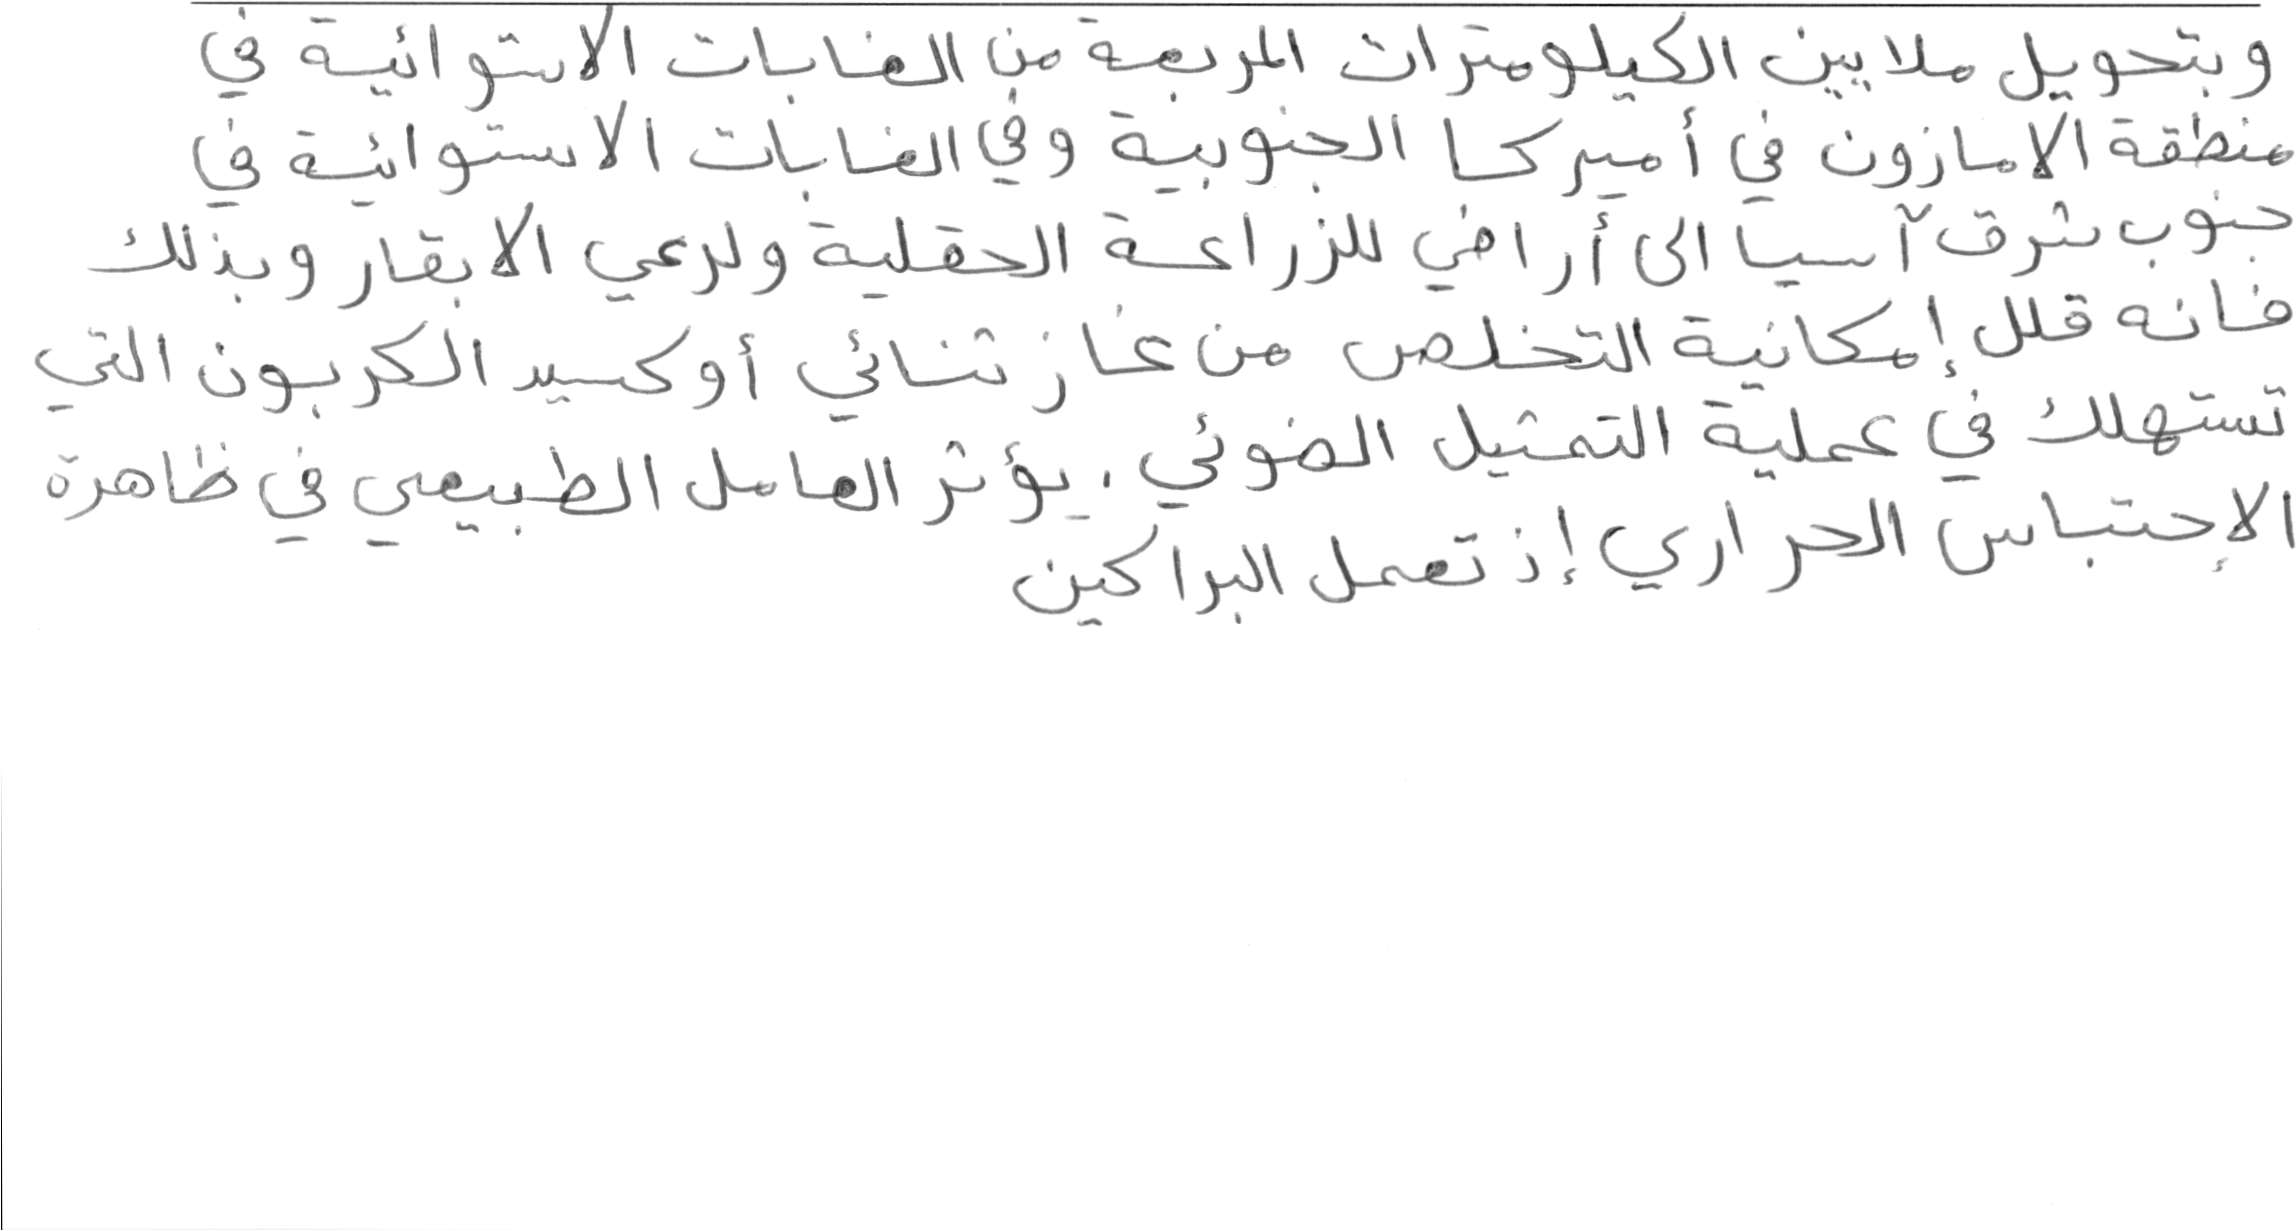 وبتحويل ملايين الكيلومترات المربعة من الغابات الاستوائية في
منطقة الامازون في أميركا الجنوبية وفي الغابات الاستوائية في
جنوب شرق آسيا الى أراضي للزراعة الحقلية ولرعي الابقار وبذلك
فانه قلل إمكانية التخلص من غاز ثنائي أوكسيد الكربون التي
تستهلك في عملية التمثيل الضوئي. يؤثر العامل الطبيعي في ظاهرة
الإحتباس الحراري إذ تعمل البراكين